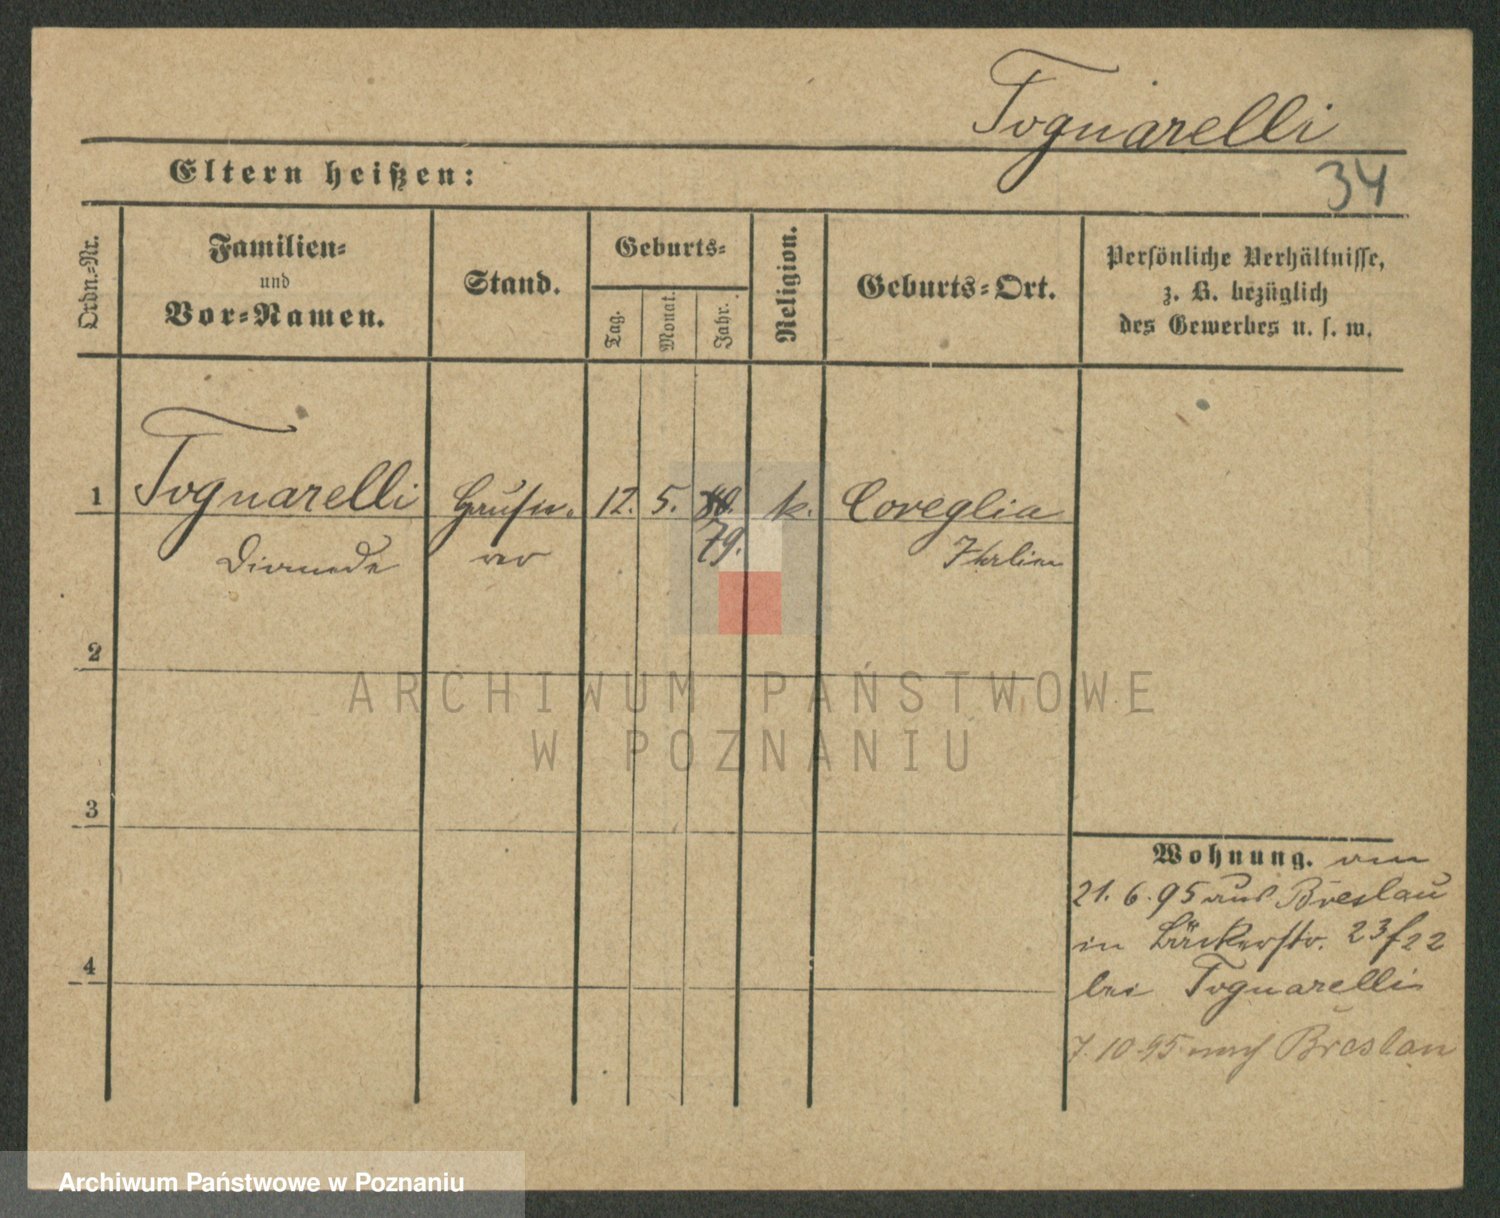 Tognarelli
Eltern heißen:
34
Ordn.-Nr.
Familien-
und
Vor-Namen.
Stand.
Geburts-
Tag.
Monat.
Jahr.
Religion.
Geburts-Ort.
Persönliche Verhältnisse,
z. B. bezüglich
des Gewerbes u. s. w.
1
Tognarelli
12. 5.
k.
Coreglia
79.
Diomede
Italien
2
ARCHIWUM PAŃSTWOWE
W POZNANIU
3
Wohnung. am
21. 6. 95 aus Breslau
in Bäckerstr. 23 f 22
bei Tognarelli
4
7. 10. 95 nach Breslau
Archiwum Państwowe w Poznaniu